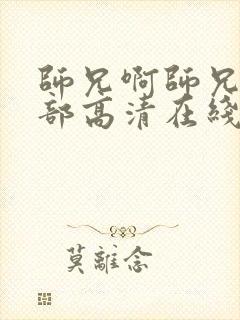 師兄啊師兄
部高清在綫
莫離念